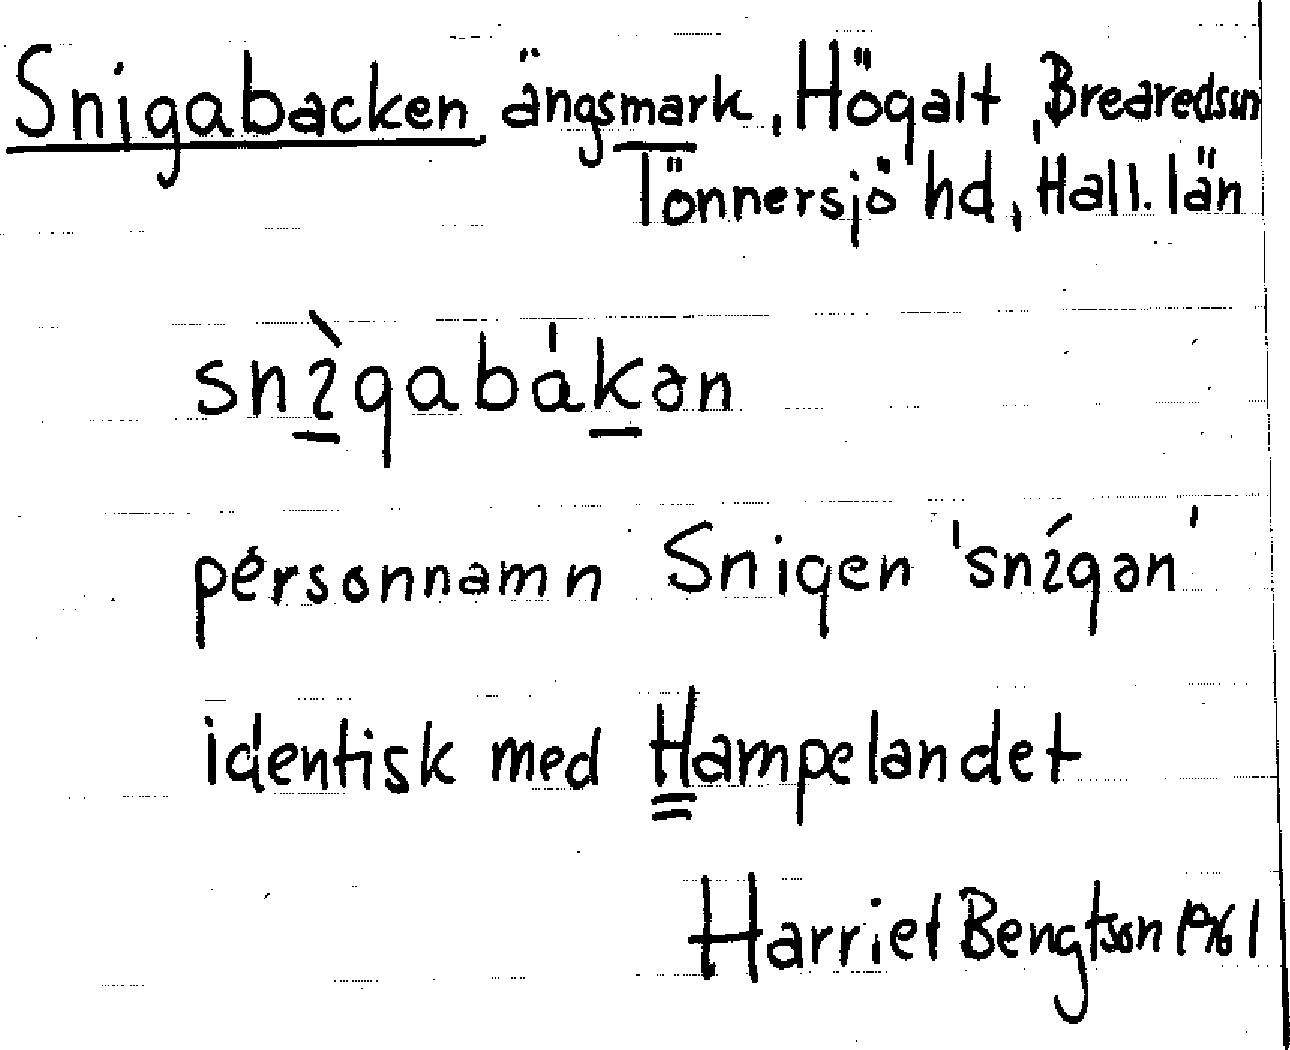 Snigabacken ängsmark, Högalt, Brearedssn
Tönnersjö hd, Hall. län
snìgabákən
personnamn Snigen 'snígən'
identisk med Hampelandet
Harriet Bengtsson 1961